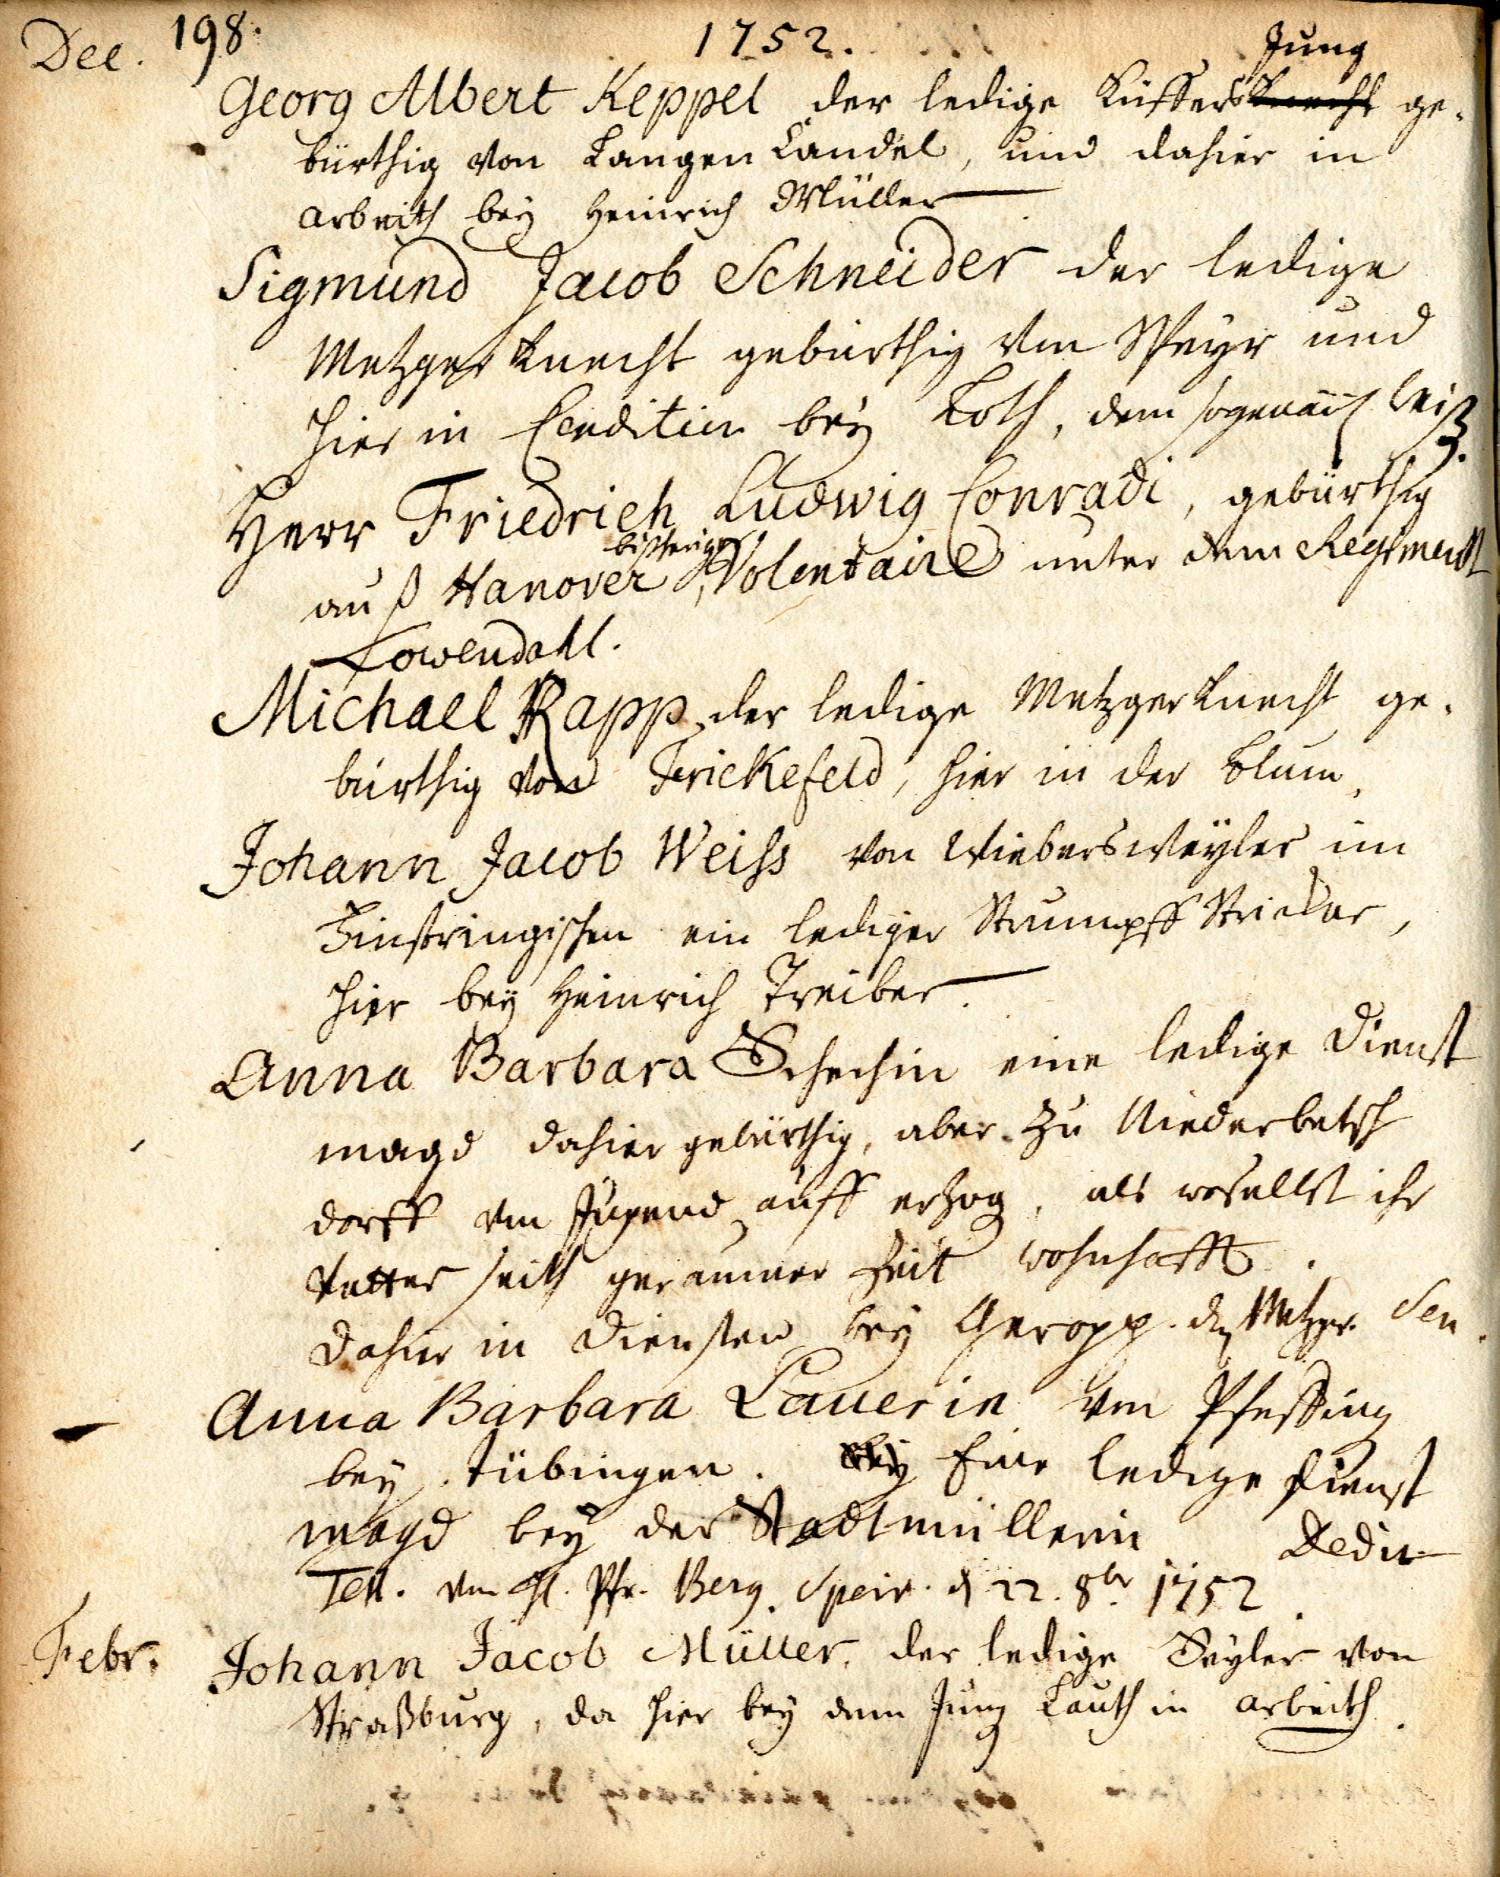 Dec. 198. 1752.
Jung
Georg Albert Keppel der ledige Küffers Knecht ge-
bürthig von Langen Candel, und dahier in
arbeith bey Heinrich Müller
Sigmund Jacob Schneider der ledige
Metzger Knecht gebürthig von Speyr und
hier in Condition bey Loth, dem
Herr Friedrich Ludwig Conradi, gebürthig
bißheriger
auß Hanover, Volentaire unter dem Regiment
Lowendahl.
Michael Rapp, der ledige Metzger Knecht ge-
bürthig von Frickefeld, hier in der Blum.
Johann Jacob Weiss von Wieberswéyler im
Finstringischen ein lediger Strumpff Stricker,
hier bey Heinrich Treiber.
Anna Barbara Schechin eine ledige Dienst
magd dahier gebürthig, aber zu Niederbetsch
dorff von Jugend auff erzog, als woselbst ihr
Vatter seith geraumer Zeit wohnhafft.
Dahier in Diensten bey Geropp. Metzger Sen.
Anna Barbara Lauerin von Pfeffing
bey Tübingen. bey Eine ledige Dienst
magd bey der Stadtmüllerin Dedit
Test. von H. Pfr. Berg. Speir. d 22. 8br 1752.
Febr. Johann Jacob Müller, der ledige Seyler von
Straßburg, da hier bey dem Jung Lauth in arbeith.